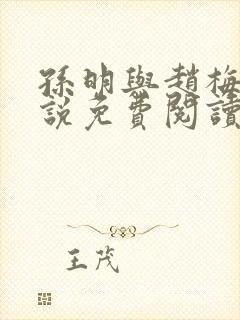 孫明與趙梅
說免費閱讀
王茂